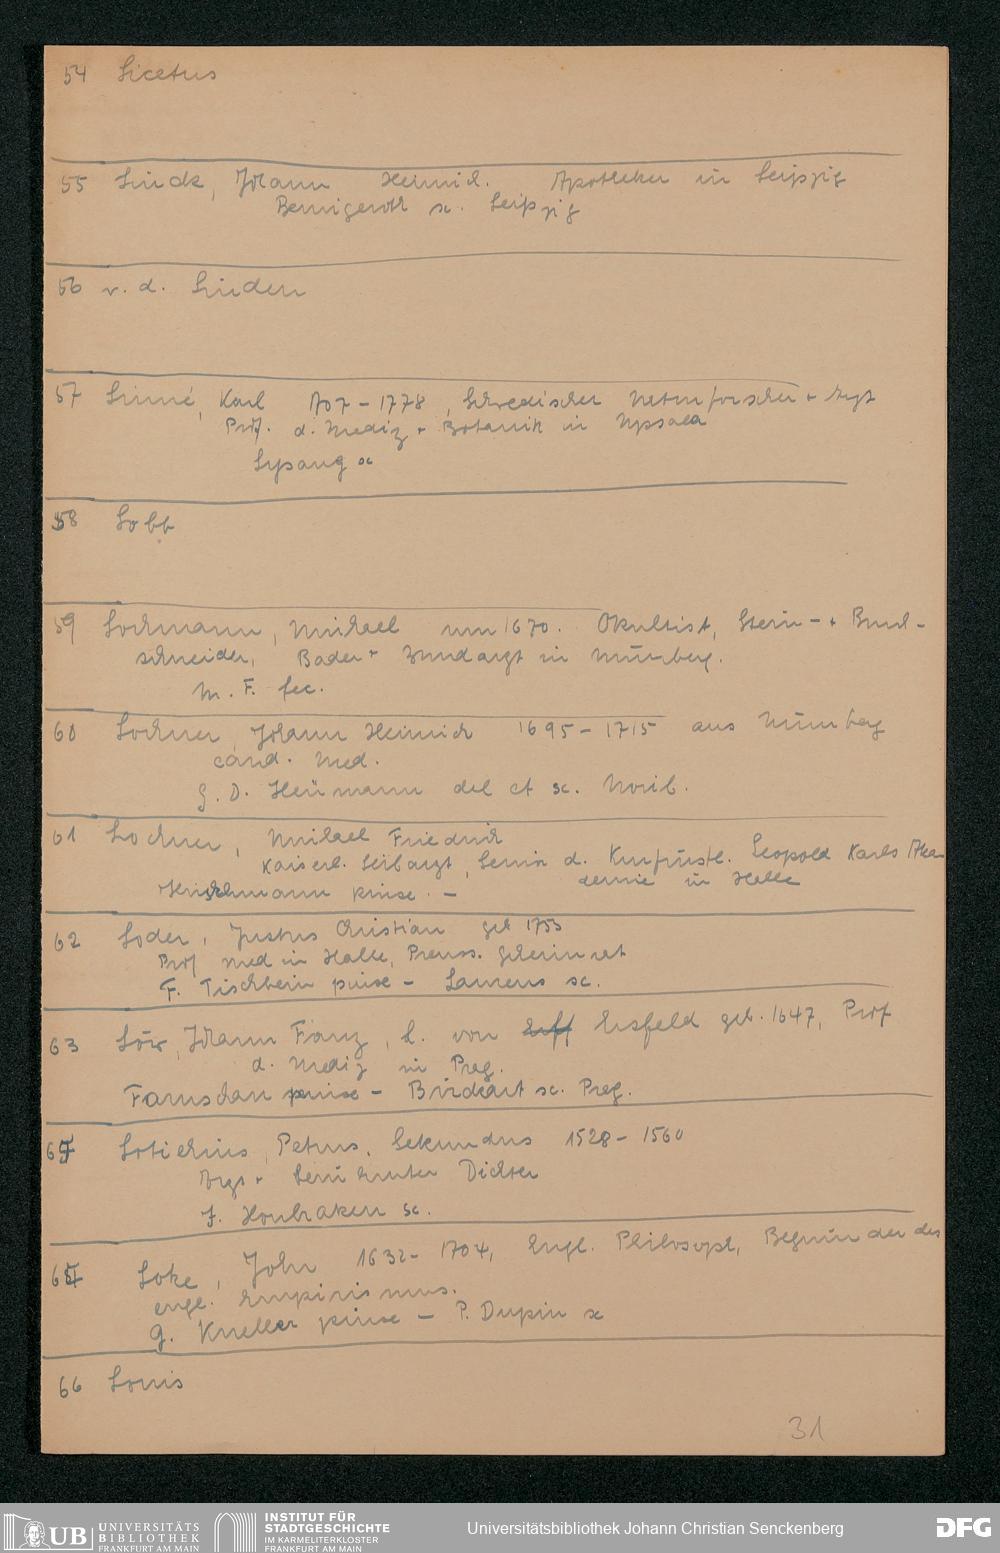 54 Licetus
55 Linck, Johann Heinrich. Apotheker in Leipzig
Bernigeroth sc. Leipzig
56 v. d. Linden
57 Linné, Karl 1707-1778, Schwedischer Naturforscher + Arzt
Prof. d. Mediz + Botanik in Upsala
Lysang sc
58 Lobb
59 Lochmann, Michael um 1670. Okultist, Stein- + Bruch-
schneider, Bader + Wundarzt in Nürnberg.
M. F. fec.
60 Lochner, Johann Heinrich 1695-1715 aus Nürnberg
cand. Med.
G. D. Heümann del et sc. Norib.
61 Lochner, Michael Friedrich
Kaiserl. Leibarzt, Senior d. Kurfürstl. Leopold Karls Aka
demie in Halle
Hirschmann pinxe. -
62 Loder, Justus Christian geb 1753
Prof med in Halle, Preuss. Geheimrat
F. Tischbein pinxe - Laurens sc.
63 Löw, Johann Franz, L. von Ersfeld geb. 1647, Prof
d. Mediz in Prag.
pinxe - Birckart sc. Prag.
64 Lotichius, Petrus, Sekundus 1528-1560
Arzt + berühmter Dichter
J. Houbraken sc.
65 Loke, John 1632-1704, Engl. Philosoph, Begründer des
engl. Empirismus.
G. Kneller pinxe - P. Dupin sc
66 Louis
31
UB UNIVERSITÄTS
BIBLIOTHEK
FRANKFURT AM MAIN
INSTITUT FÜR
STADTGESCHICHTE
IM KARMELITERKLOSTER
FRANKFURT AM MAIN
Universitätsbibliothek Johann Christian Senckenberg
DFG